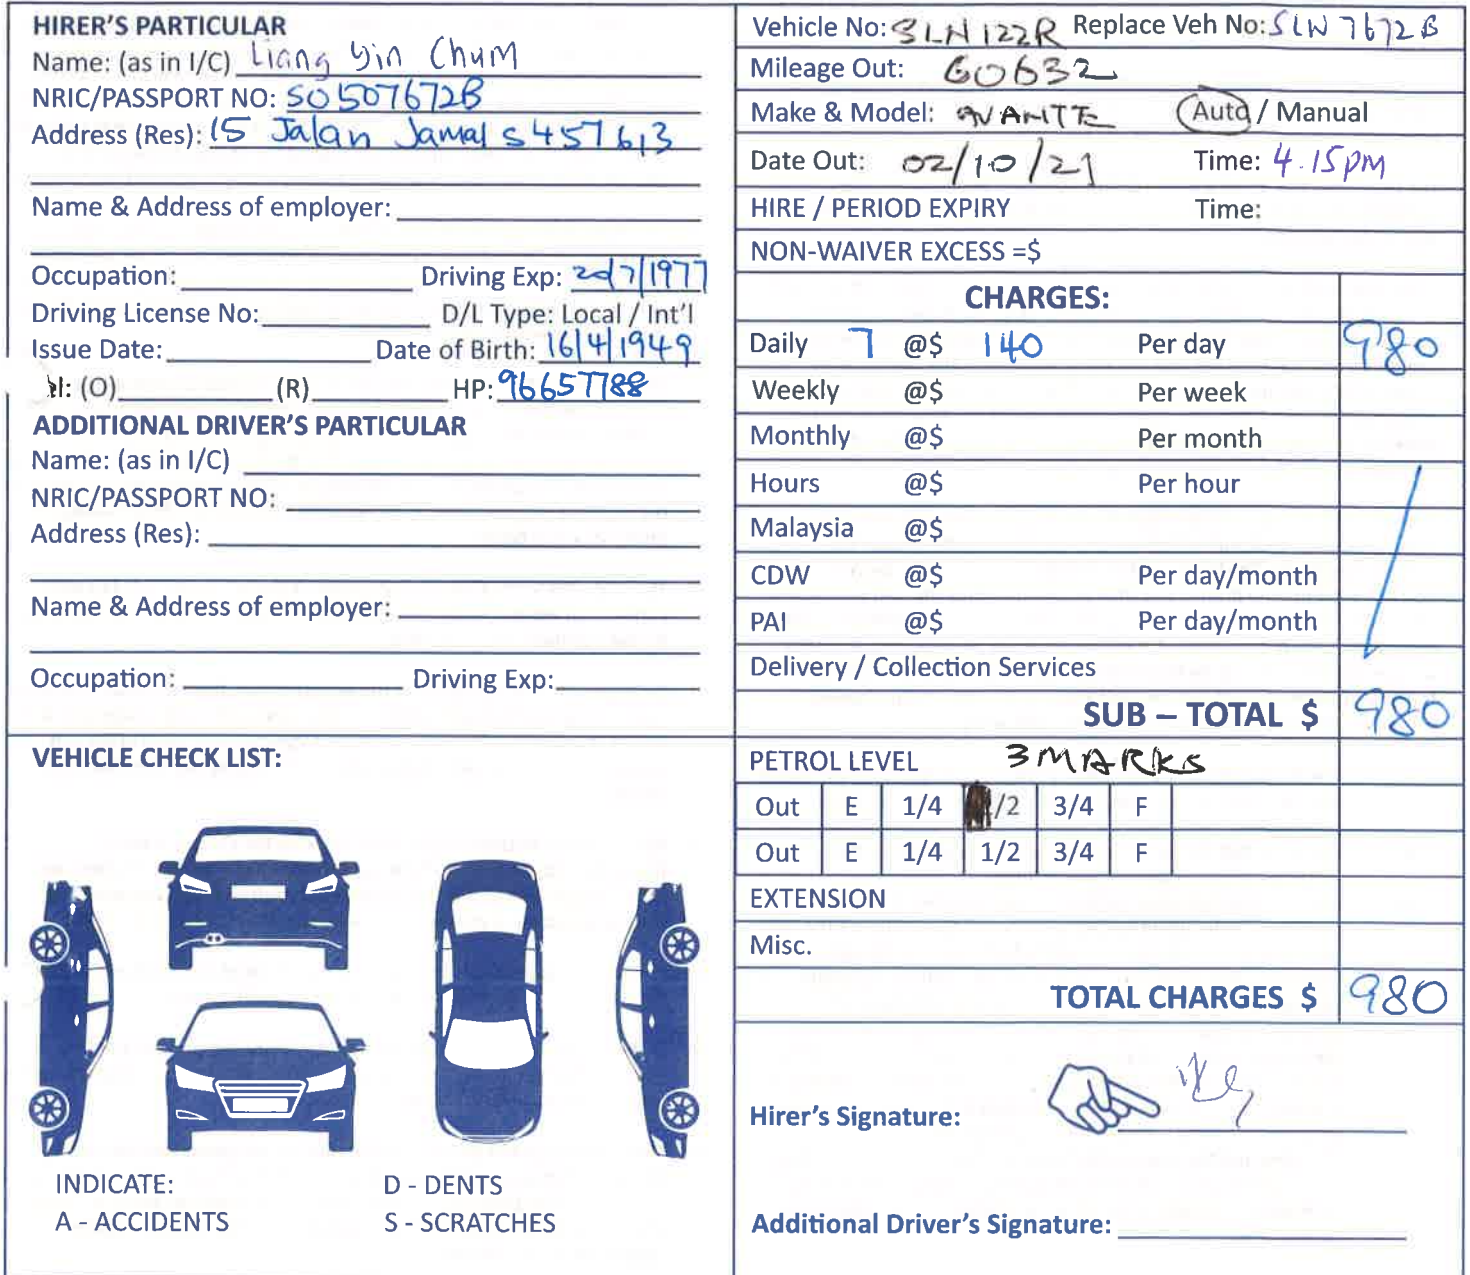 HIRER'S PARTICULAR
Name: (as in I/C) Liang Yin Chum
NRIC/PASSPORT NO: S0507672B
Address (Res): 15 Jalan Jamal S457613
Name & Address of employer:
Occupation: Driving Exp: 20/7/1977
Driving License No: D/L Type: Local / Int'l
Issue Date: Date of Birth: 16/4/1949
el: (O) (R) HP: 96657788
ADDITIONAL DRIVER'S PARTICULAR
Name: (as in I/C)
NRIC/PASSPORT NO:
Address (Res):
Name & Address of employer:
Occupation: Driving Exp:
VEHICLE CHECK LIST:
INDICATE: D - DENTS
A - ACCIDENTS S - SCRATCHES
Vehicle No: SLN122R Replace Veh No: SLN7672B
Mileage Out: 60632
Make & Model: AVANTE Auto / Manual
Date Out: 02/10/21 Time: 4.15pm
HIRE / PERIOD EXPIRY Time:
NON-WAIVER EXCESS =$
CHARGES:
Daily 7 @$ 140 Per day 980
Weekly @$ Per week
Monthly @$ Per month
Hours @$ Per hour
Malaysia @$
CDW @$ Per day/month
PAI @$ Per day/month
Delivery / Collection Services
SUB – TOTAL $ 980
PETROL LEVEL 3 MARKS
Out E 1/4 /2 3/4 F
Out E 1/4 1/2 3/4 F
EXTENSION
Misc.
TOTAL CHARGES $ 980
Hirer's Signature:
Additional Driver's Signature: